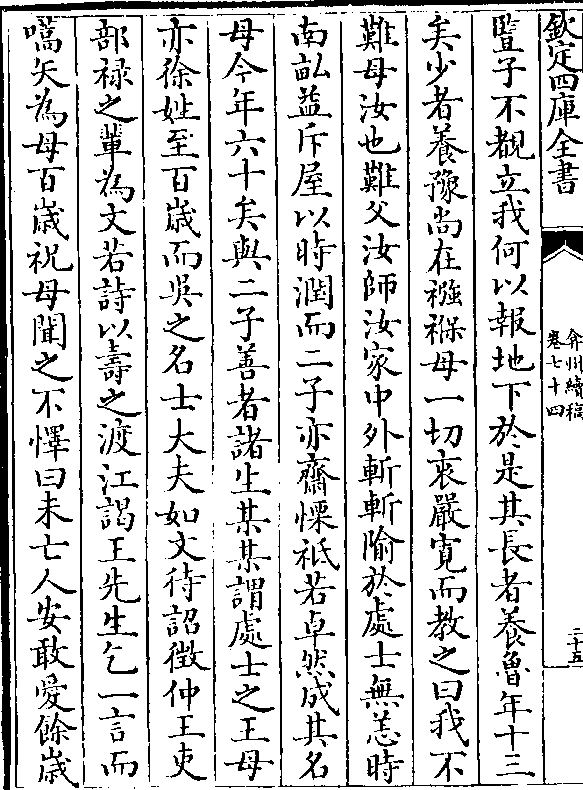 欽定四庫全書
弇州續稿
卷七十四
二十五
豎子不覩立我何以報地下於是其長者養魯年十三
矣少者養豫尚在襁褓母一切衷嚴寬而教之曰我不
難母汝也難父汝師汝家中外斬斬隃於處士無恙時
南畝益斥屋以時潤而二子亦齋慄祇若卓然成其名
母今年六十矣與二子善者諸生某某謂處士之王母
亦徐姓至百歲而吳之名士大夫如文待詔徴仲王吏
部祿之輩為文若詩以壽之渡江謁王先生乞一言而
嚆矢為母百歲祝母聞之不懌曰未亡人安敢愛餘歲